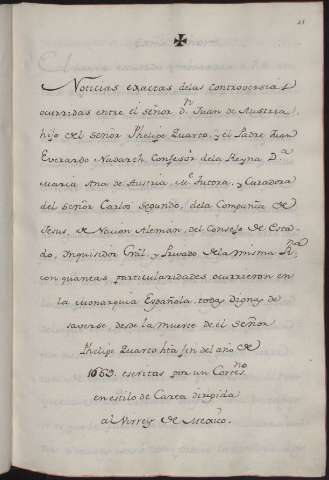 Noticias exactas delas controversias
ocurridas entre el señor Dn. Juan de Austria,
hijo del señor Phelipe Quarto, y el Padre Juan
Everardo Nidarch, Confesor dela Reyna Da.
Maria Ana de Austria, Me. Tutora, y Curadora
del señor Carlos Segundo, dela Compañia de
Jesus, de Nacion Alemán, del Consejo de Esta-
do, Inquisidor Gral. y Privado dela misma Rna.
con quantas particularidades ocurrieron en
la monarquia Española, todas dignas de
saverse desde la muerte de el señor
Phelipe Quarto hta. fin del año de
1669. escritas por un Corteno.
en estilo de Carta dirigida
al Virrey de Mexico.